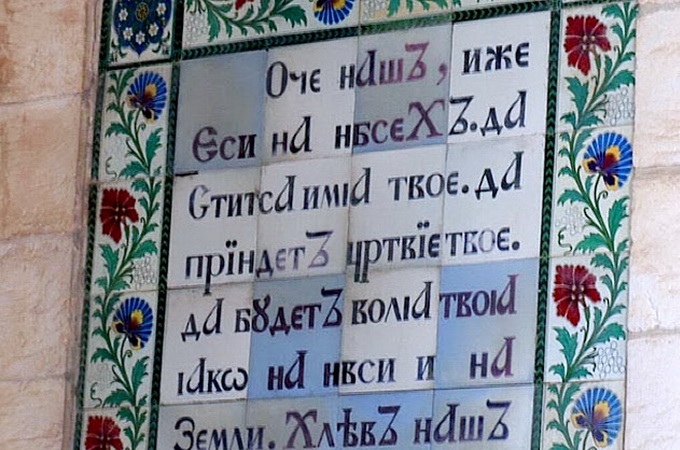 Оче нашъ, иже
Єси на нбсехъ. да
Ститса имıа твоє. да
прїидетъ цртвїє твоє.
да бꙋдетъ волıа твоıа
ıакѡ на нвси и на
Земли. Хлѣвъ нашъ